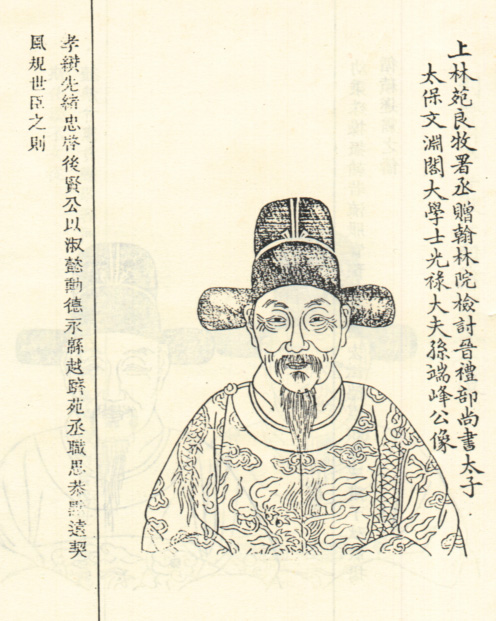 上林苑良牧署丞贈翰林院檢討晉禮部尚書太子
太保文淵閣大學士光祿大夫孫端峰公像
孝纘先緒忠啓後賢公以淑懿勳德永縣越躋苑丞職思恭點遠契
風規世臣之則